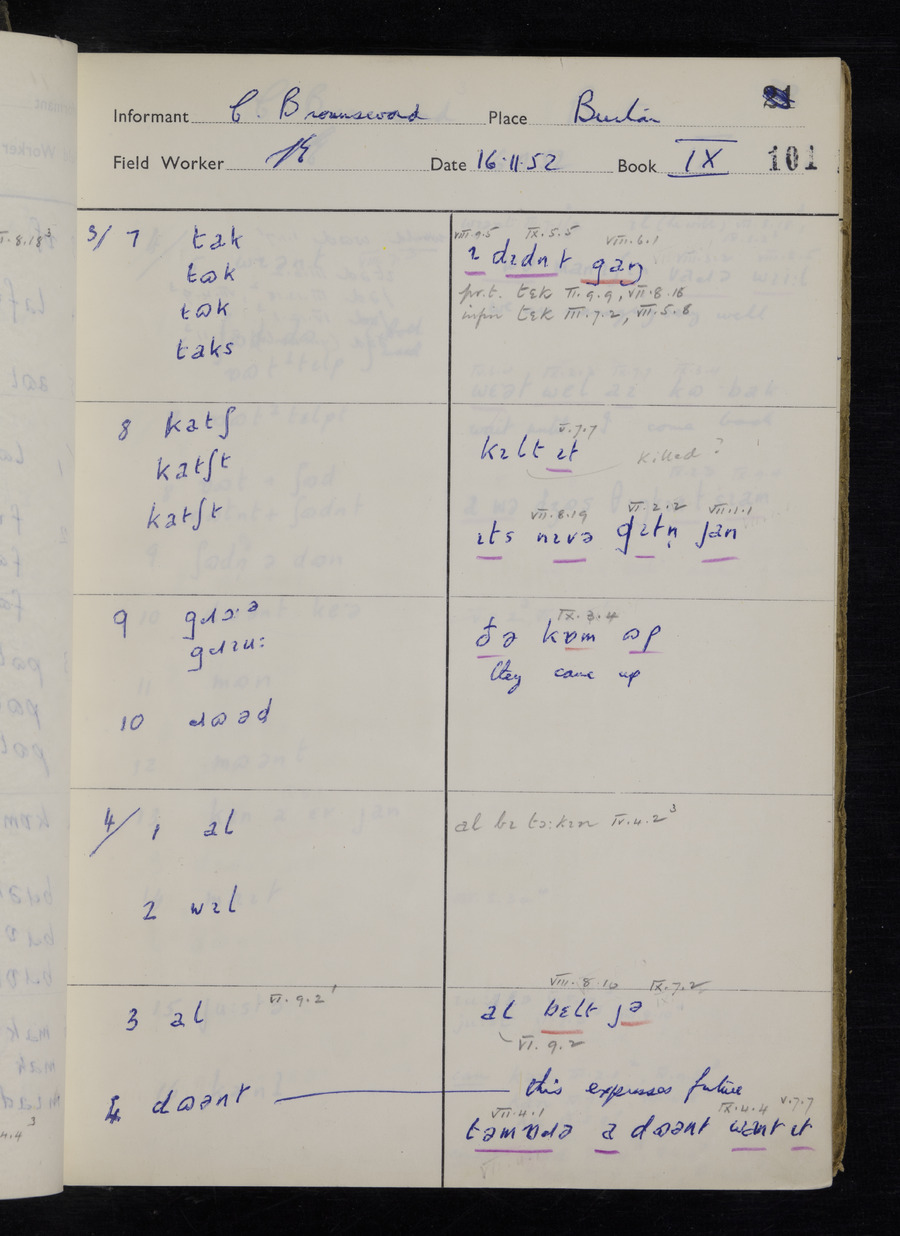 Informant C. Brownsword Place
Field Worker Date 16.11.52 Book IX 101
3/ 7 tak
tɷk
tɷk
taks
VIII.9.5 IX.5.5 VIII.6.1
ɪ dɪdnt gaŋ
pr.t. tɛk II.9.9, VII.8.18
infin tɛk III.7.2, VII.5.8
8 katʃ
katʃt
katʃt
V.7.7
kɪlt ɪt killed?
VII.8.19 VII.2.2 VII.1.1
ɪts nɪvə gɪtn̩ jan
9 gɹɔ·ə
gɹɪu:
IX.3.4
ðə kɒm ɷp
they came up
10 ɹɷəd
4/ 1 al
al bɪ tɔ:kɪn IV.4.2³
2 wɪl
3 al VI.9.2¹
VIII.8.10 IX.7.2
al bɛlt jə
VI.9.2
4 dɷənt this expresses future
VII.4.1 IX.4.4 V.7.7
təmɒɹə a dɷənt want ɪt